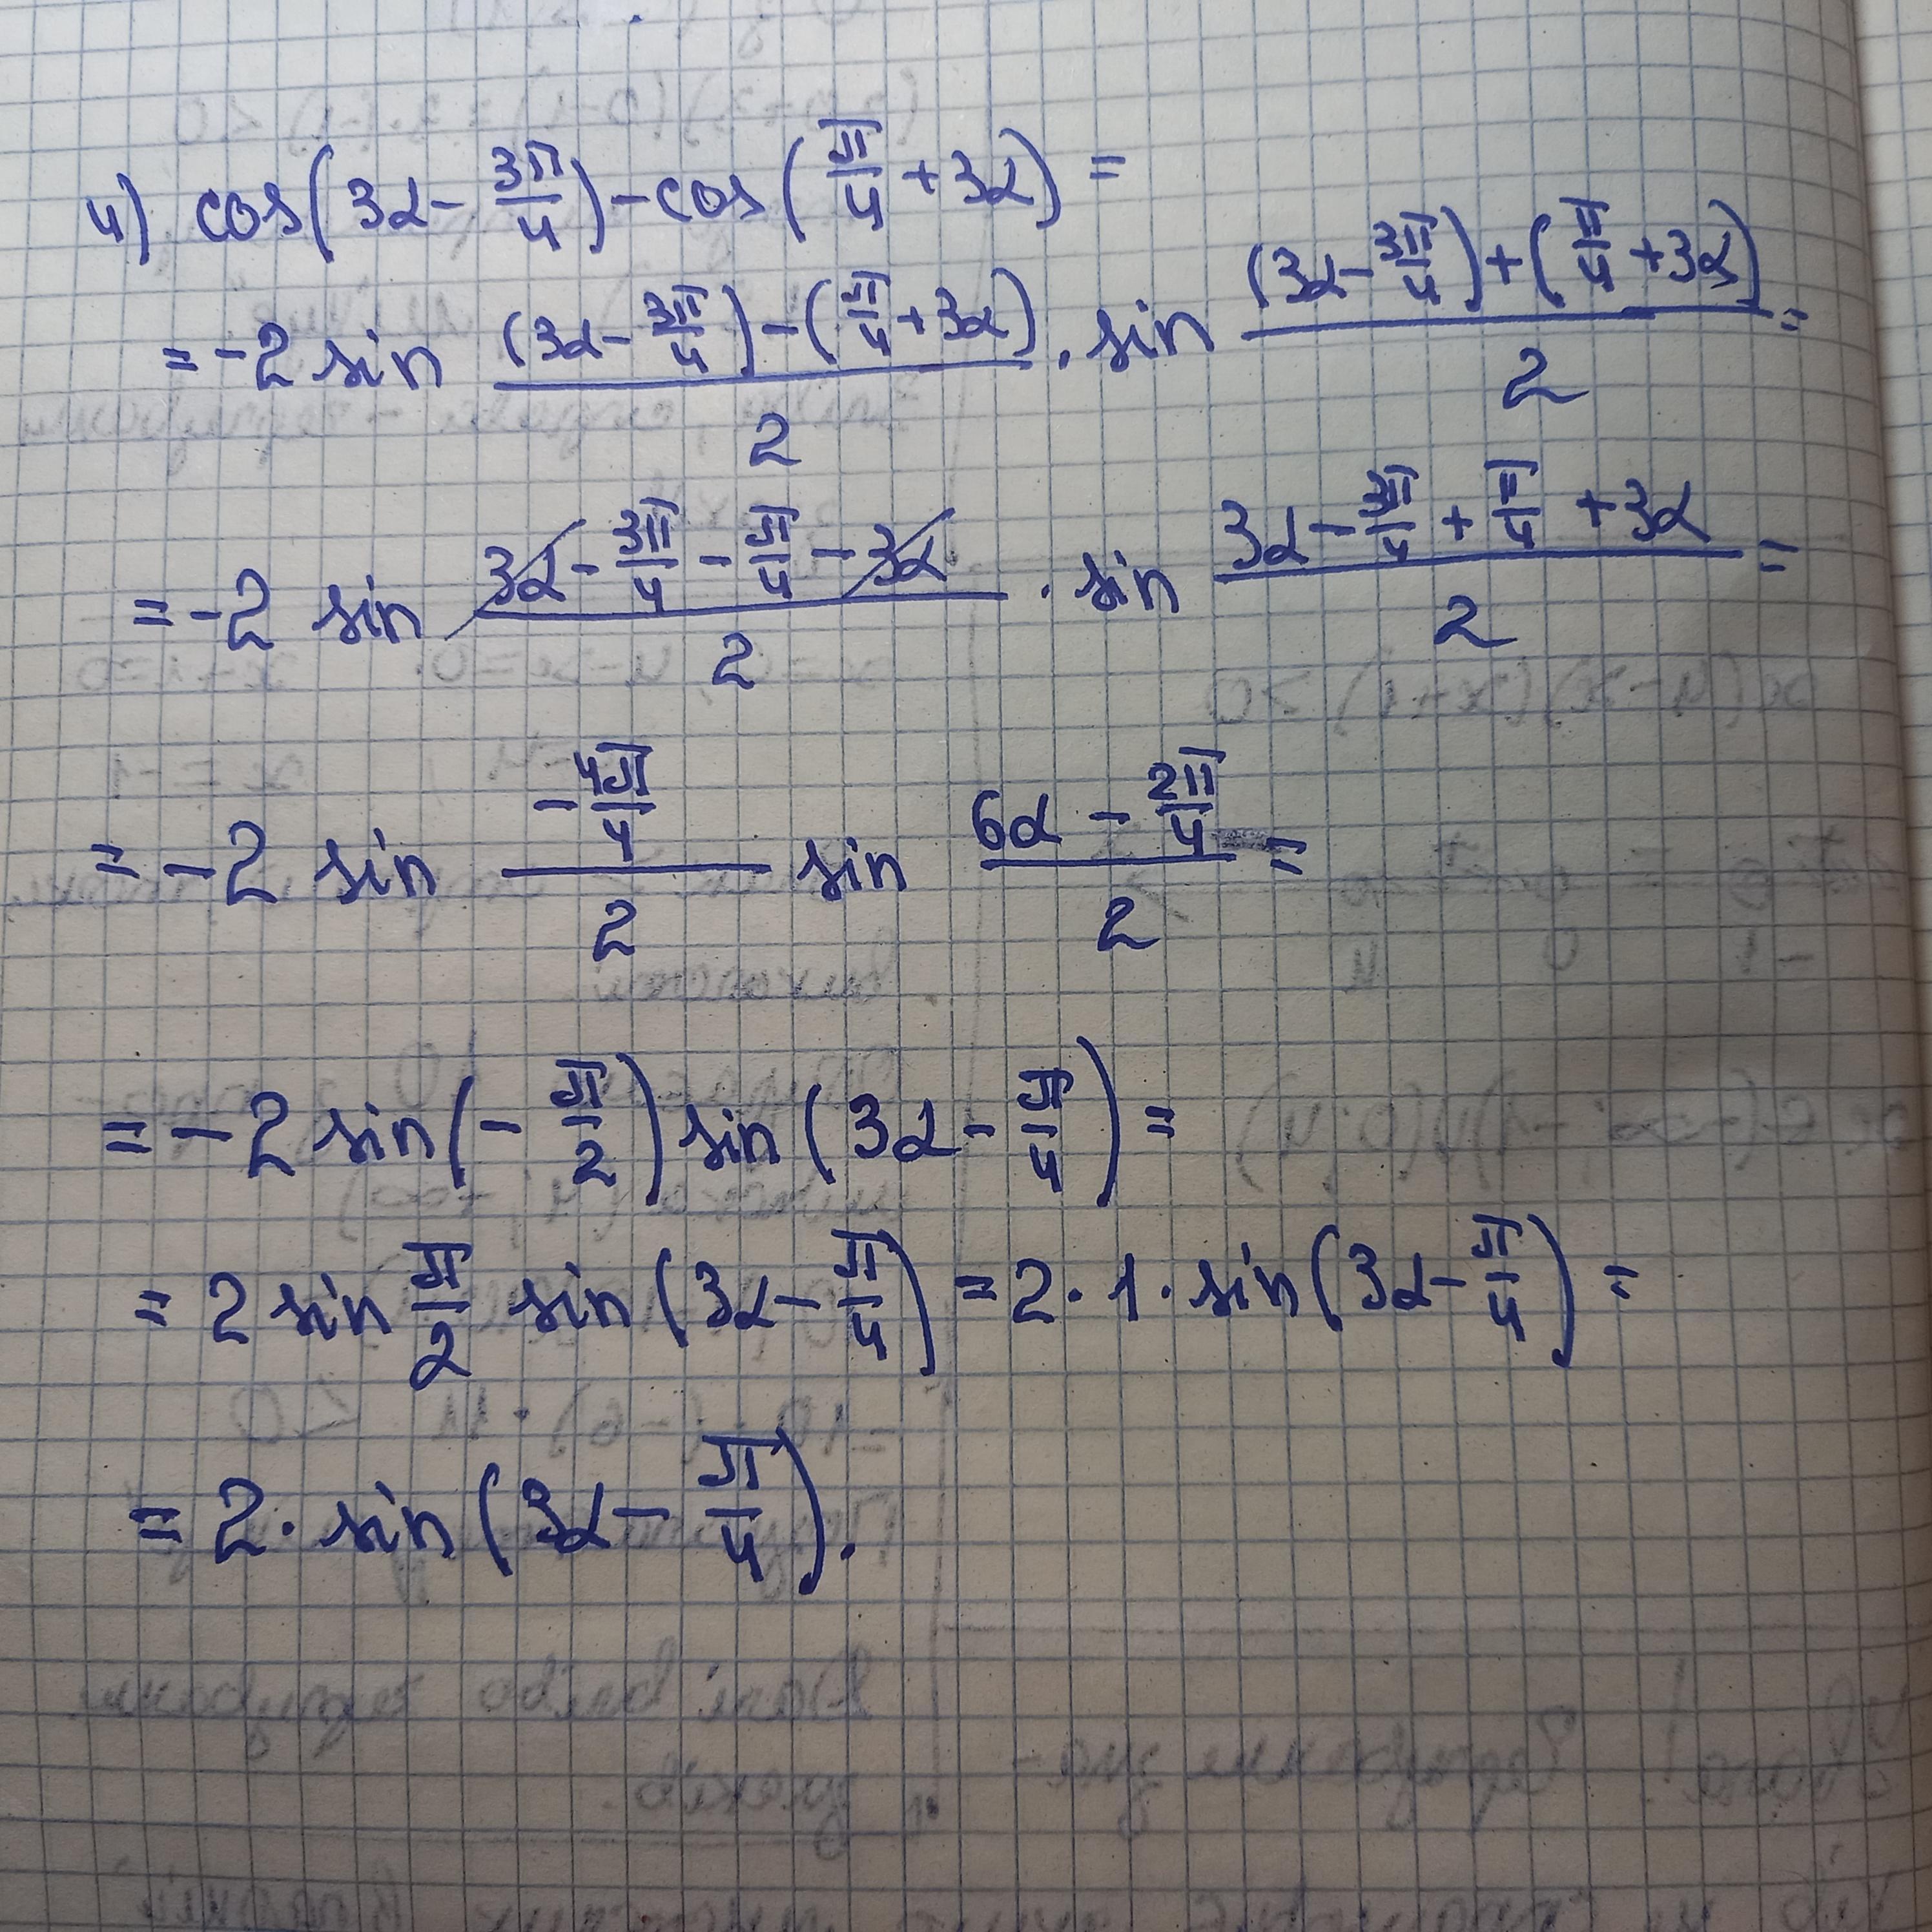 4) cos(3α - 3π/4) - cos(π/4 + 3α) =
= -2 sin ((3α - 3π/4) - (π/4 + 3α))/2 · sin ((3α - 3π/4) + (π/4 + 3α))/2 =
= -2 sin (3α - 3π/4 - π/4 - 3α)/2 · sin (3α - 3π/4 + π/4 + 3α)/2 =
= -2 sin (-4π/4)/2 sin (6α - 2π/4)/2 =
= -2 sin(-π/2) sin(3α - π/4) =
= 2 sin π/2 sin(3α - π/4) = 2 · 1 · sin(3α - π/4) =
= 2 · sin(3α - π/4).